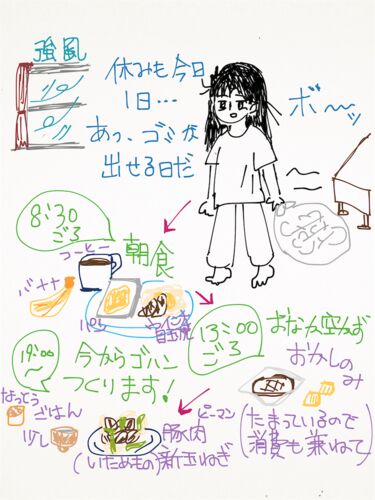 強風
休みも今日
1日…
あっ、ゴミが
出せる日だ
ボ〜ッ
8:30
ごろ
朝食
コーヒー
バナナ
パン
ウインナー
目玉焼
13:00
ごろ
おなか空かず
おかしのみ
(たまっているので
消費も兼ねて)
19:00
〜
今からゴハン
つくります!
なっとう
ごはん
少し
ピーマン
豚肉
新玉ねぎ
(いためもの)